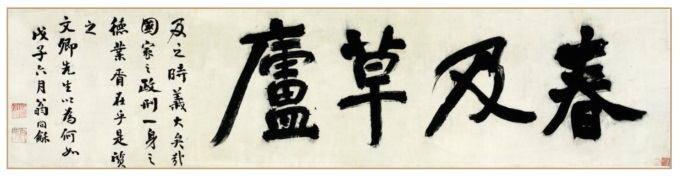 春及草廬
及之時義大矣哉
國家之政刑一身之
德業胥在乎是質
之
文卿先生以為何如
戊子六月翁同龢